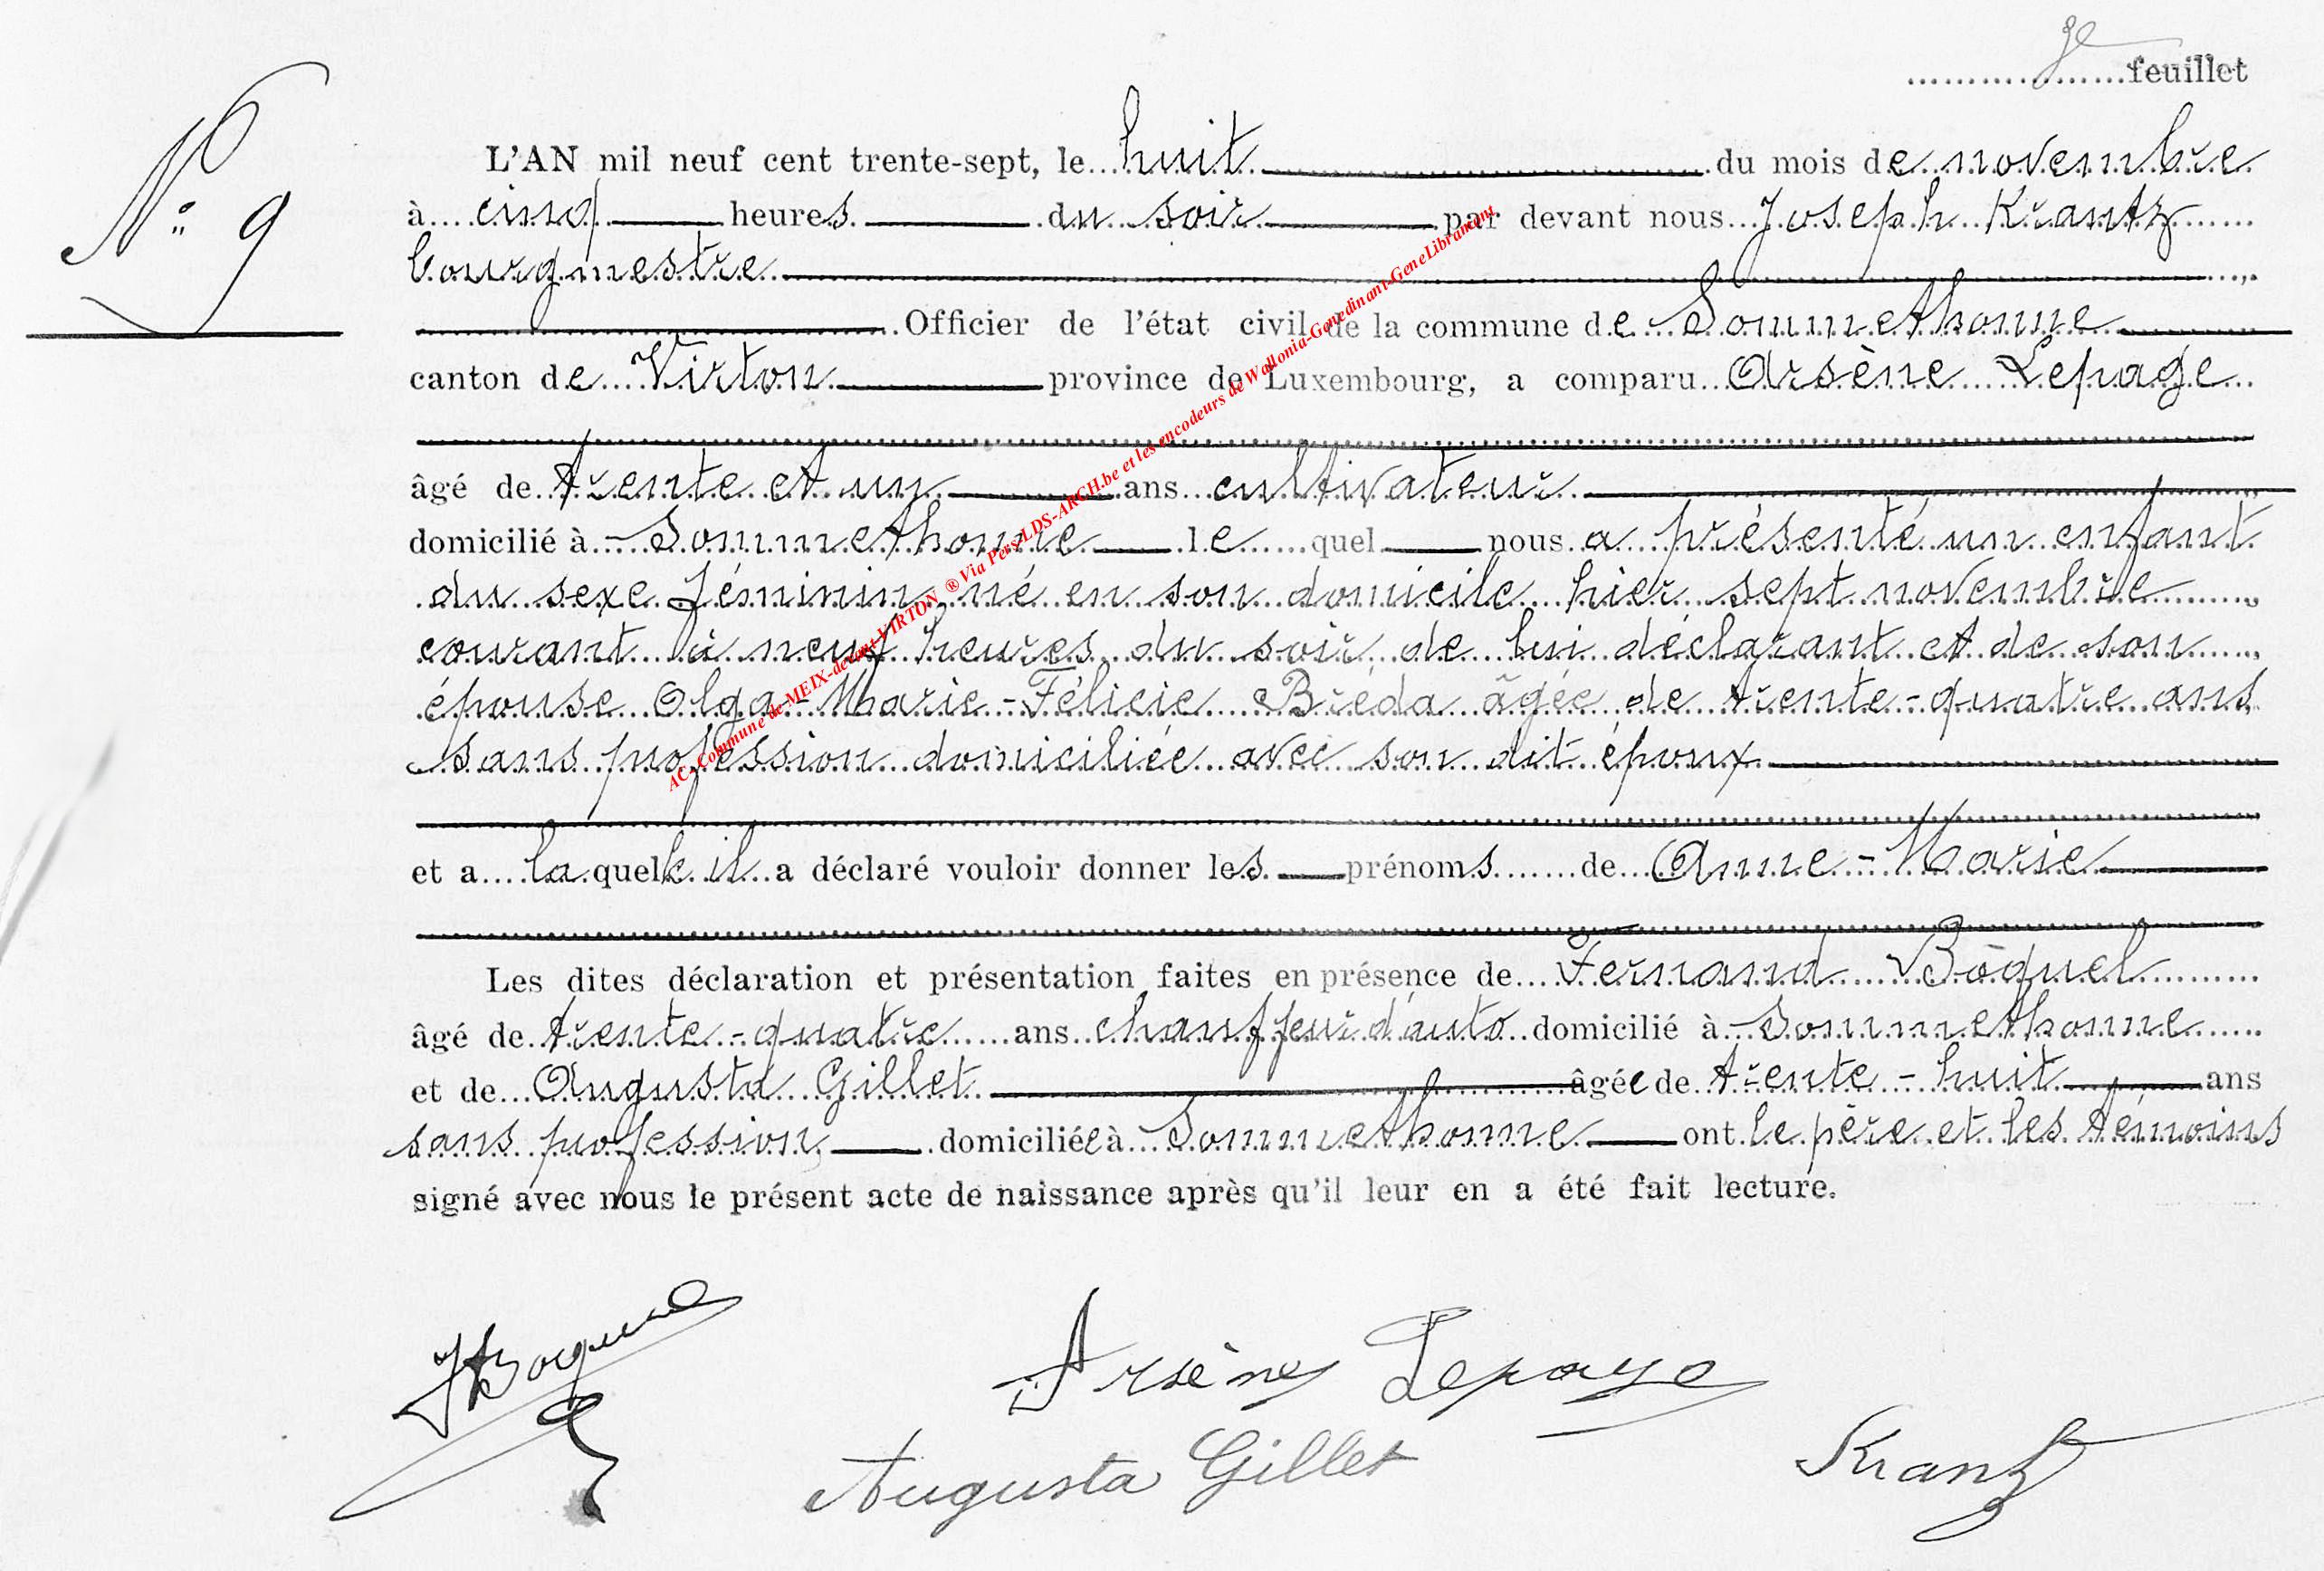 feuillet
N° 9
L'AN mil neuf cent trente-sept, le huit du mois de novembre
à cinq heures du soir par devant nous Joseph Krantz
bourgmestre,
Officier de l'état civil de la commune de Sommethonne
canton de Virton province de Luxembourg, a comparu Arsène Lepage
âgé de trente et un ans cultivateur
domicilié à Sommethonne lequel nous a présenté un enfant
du sexe féminin, né en son domicile hier sept novembre
courant à neuf heures du soir, de lui déclarant et de son
épouse Olga-Marie-Félicie Bréda âgée de trente-quatre ans
sans profession domiciliée avec son dit époux
et a laquelle il a déclaré vouloir donner les prénoms de Anne-Marie
Les dites déclaration et présentation faites en présence de Fernand Boquel
âgé de trente-quatre ans chauffeur d'auto domicilié à Sommethonne
et de Augusta Gillet âgée de trente-huit ans
sans profession domiciliée à Sommethonne ont le père et les témoins
signé avec nous le présent acte de naissance après qu'il leur en a été fait lecture.
FBoquel
Arsène Lepage
Augusta Gillet
Krantz
AC-Commune de MEIX-devant-VIRTON ® Via Pers-LDS-ARCH.be et les encodeurs de Wallonia-Genedinant-GeneLibrancent